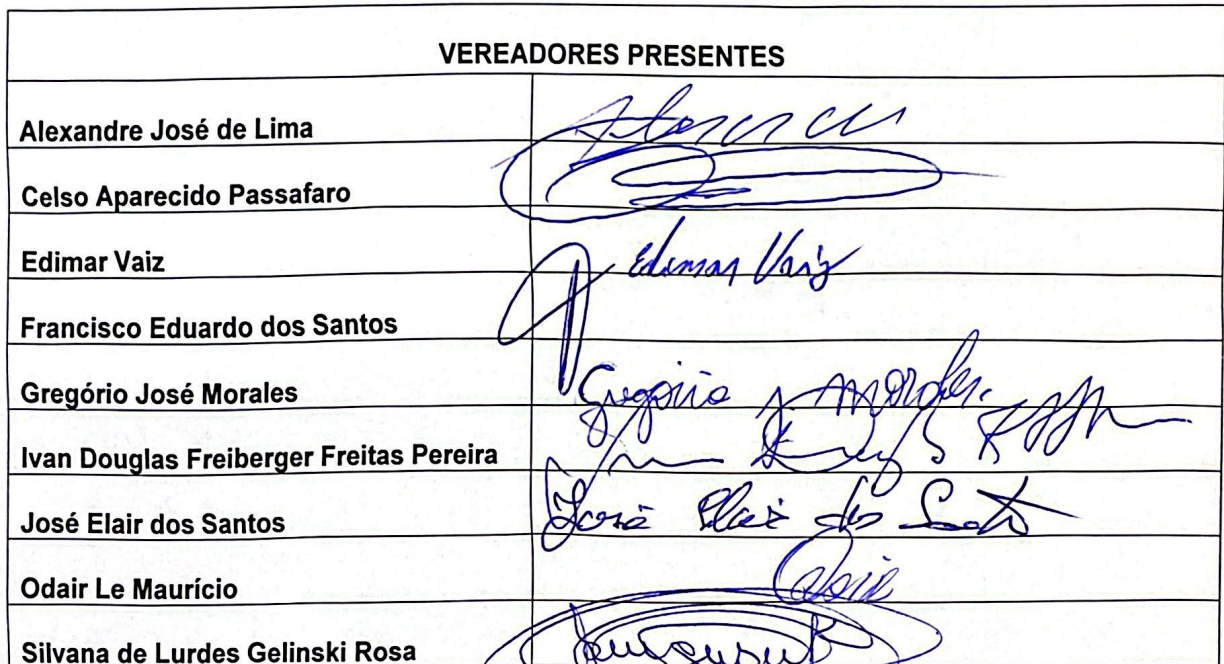 VEREADORES PRESENTES
Alexandre José de Lima
Celso Aparecido Passafaro
Edimar Vaiz Edimar Vaiz
Francisco Eduardo dos Santos
Gregório José Morales Gregório J Morales
Ivan Douglas Freiberger Freitas Pereira
José Elair dos Santos José Elair dos Santos
Odair Le Maurício
Silvana de Lurdes Gelinski Rosa